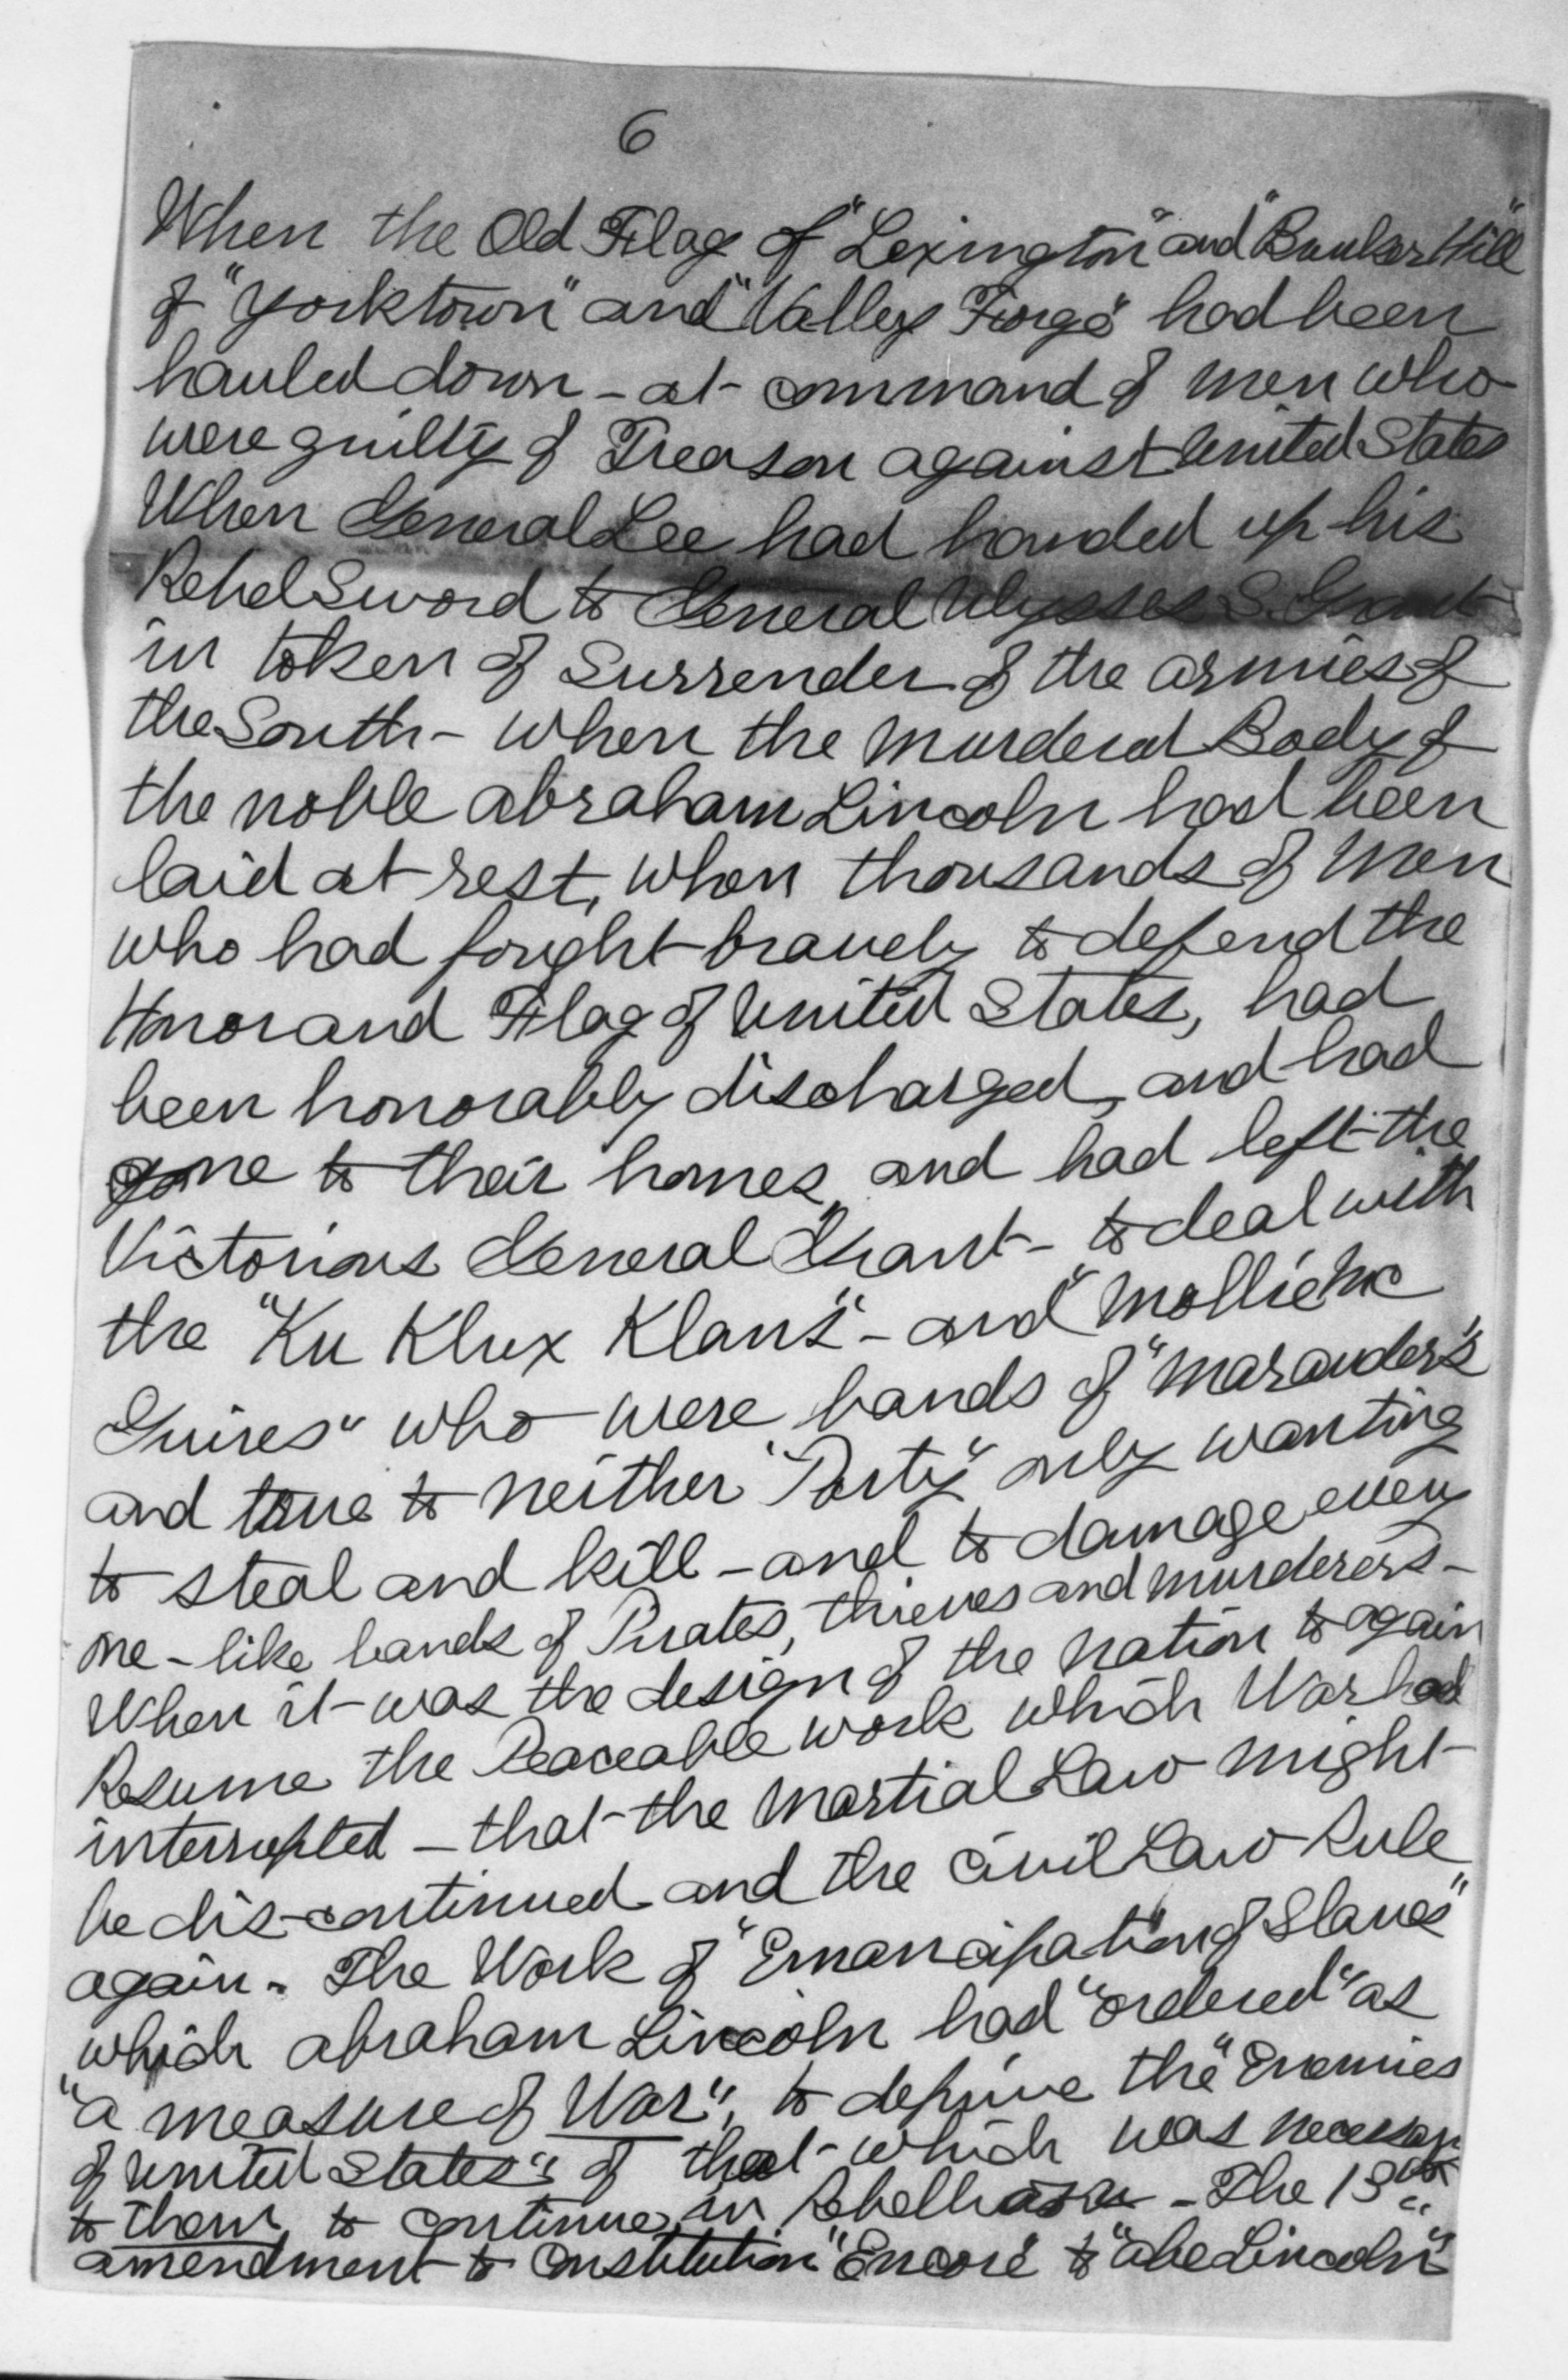 6
When the Old Flag of "Lexington" and "Bunker Hill"
of "Yorktown" and "Valley Forge" had been
hauled down - at command of men who
were guilty of Treason against United States
When General Lee had handed up his
Rebel Sword to General Ulysses S. Grant
in token of Surrender of the armies of
the South - when the murdered Body of
the noble abraham Lincoln had been
laid at rest, when thousands of men
who had fought bravely to defend the
Honor and Flag of United States, had
been honorably discharged, and had
gone to their homes, and had left the
Victorious General Grant - to deal with
the "Ku Klux Klans" - and "Mollie Mc
Guires" who were bands of "marauders"
and true to neither "Party" only wanting
to steal and kill - and to damage every
one - like bands of Pirates, thieves and murderers -
When it was the design of the nation to again
Resume the Peaceable work which War had
interrupted - that the Martial Law might
be dis-continued and the Civil Law Rule
again. The Work of "Emancipation of Slaves"
which abraham Lincoln had "ordered" as
"a measure of War", to deprive the "Enemies
of United States" of that which was necessary
to them, to continue in Rebellion - The 13th
amendment to Constitution "Encore" to "abe Lincoln"